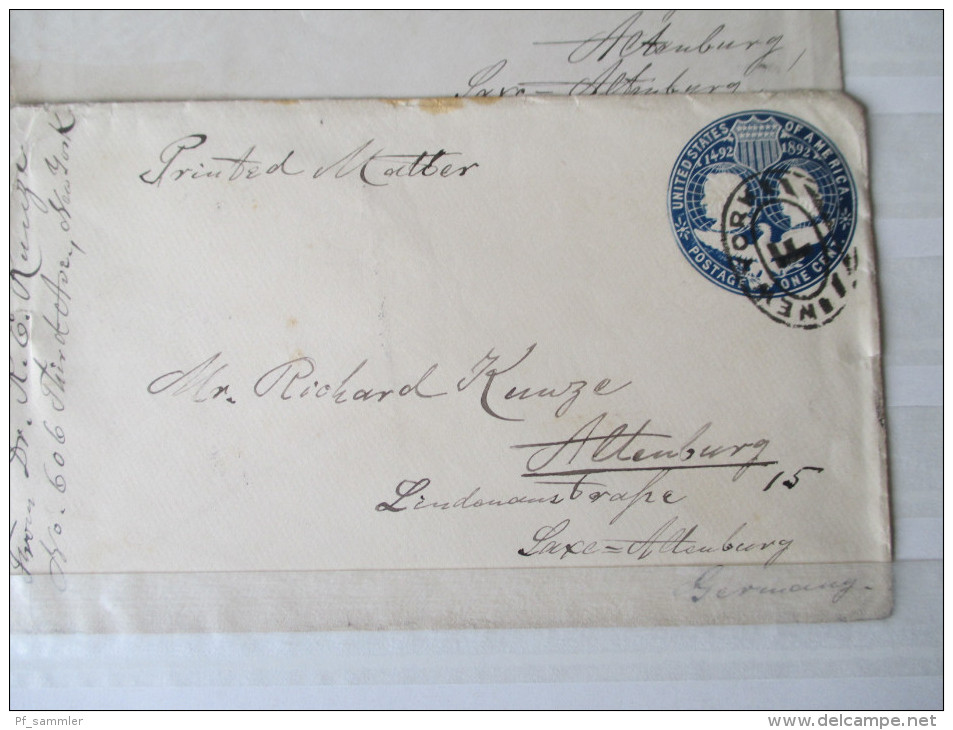 Altenburg,
Saxe=Altenburg
Printed Matter
UNITED STATES OF AMERICA
1492 1892
POSTAGE ONE CENT
NEW YORK
F
From Dr. R. C. Kunze
No. 606 Third Ave, New York
Mr. Richard Kunze
Altenburg
Lindenaustraße 15
Saxe=Altenburg
Germany.
Pf_sammler
www.delcampe.net